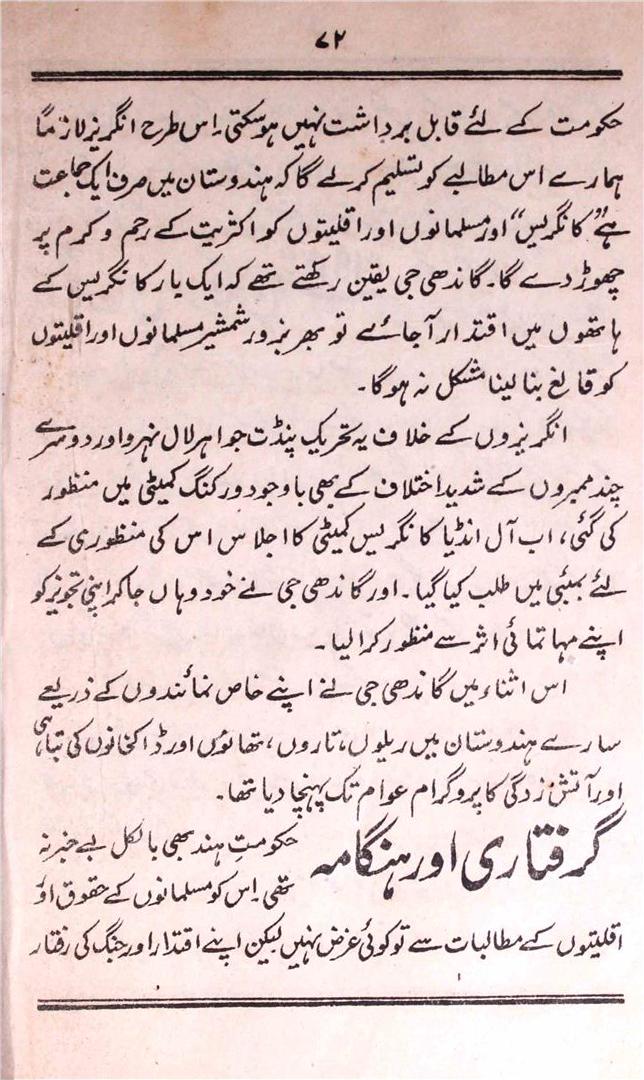 ۷۲
حکومت کے لئے قابل برداشت نہیں ہوسکتی۔ اس طرح انگریز لازماً
ہمارے اس مطالبے کو تسلیم کرلے گا کہ ہندوستان میں صرف ایک جماعت
ہے "کانگریس" اور مسلمانوں اور اقلیتوں کو اکثریت کے رحم و کرم پر
چھوڑ دے گا۔ گاندھی جی یقین رکھتے تھے کہ ایک بار کانگریس کے
ہاتھوں میں اقتدار آجائے تو پھر بزور شمشیر مسلمانوں اور اقلیتوں
کو قانع بنا لینا مشکل نہ ہوگا۔
انگریزوں کے خلاف یہ تحریک پنڈت جواہر لال نہرو اور دوسرے
چند ممبروں کے شدید اختلاف کے بھی باوجود ورکنگ کمیٹی میں منظور
کی گئی، اب آل انڈیا کانگریس کمیٹی کا اجلاس اس کی منظوری کے
لئے بمبئی میں طلب کیا گیا۔ اور گاندھی جی نے خود وہاں جاکر اپنی تجویز کو
اپنے مہاتمائی اثر سے منظور کرالیا۔
اس اثناء میں گاندھی جی نے اپنے خاص نمائندوں کے ذریعے
سارے ہندوستان میں ریلوں، تاروں، تھانوں اور ڈاکخانوں کی تباہی
اور آتش زدگی کا پروگرام عوام تک پہنچا دیا تھا۔
گرفتاری اور ہنگامہ حکومتِ ہند بھی بالکل بے خبر نہ
تھی۔ اس کو مسلمانوں کے حقوق اور
اقلیتوں کے مطالبات سے تو کوئی غرض نہیں لیکن اپنے اقتدار اور جنگ کی رفتار